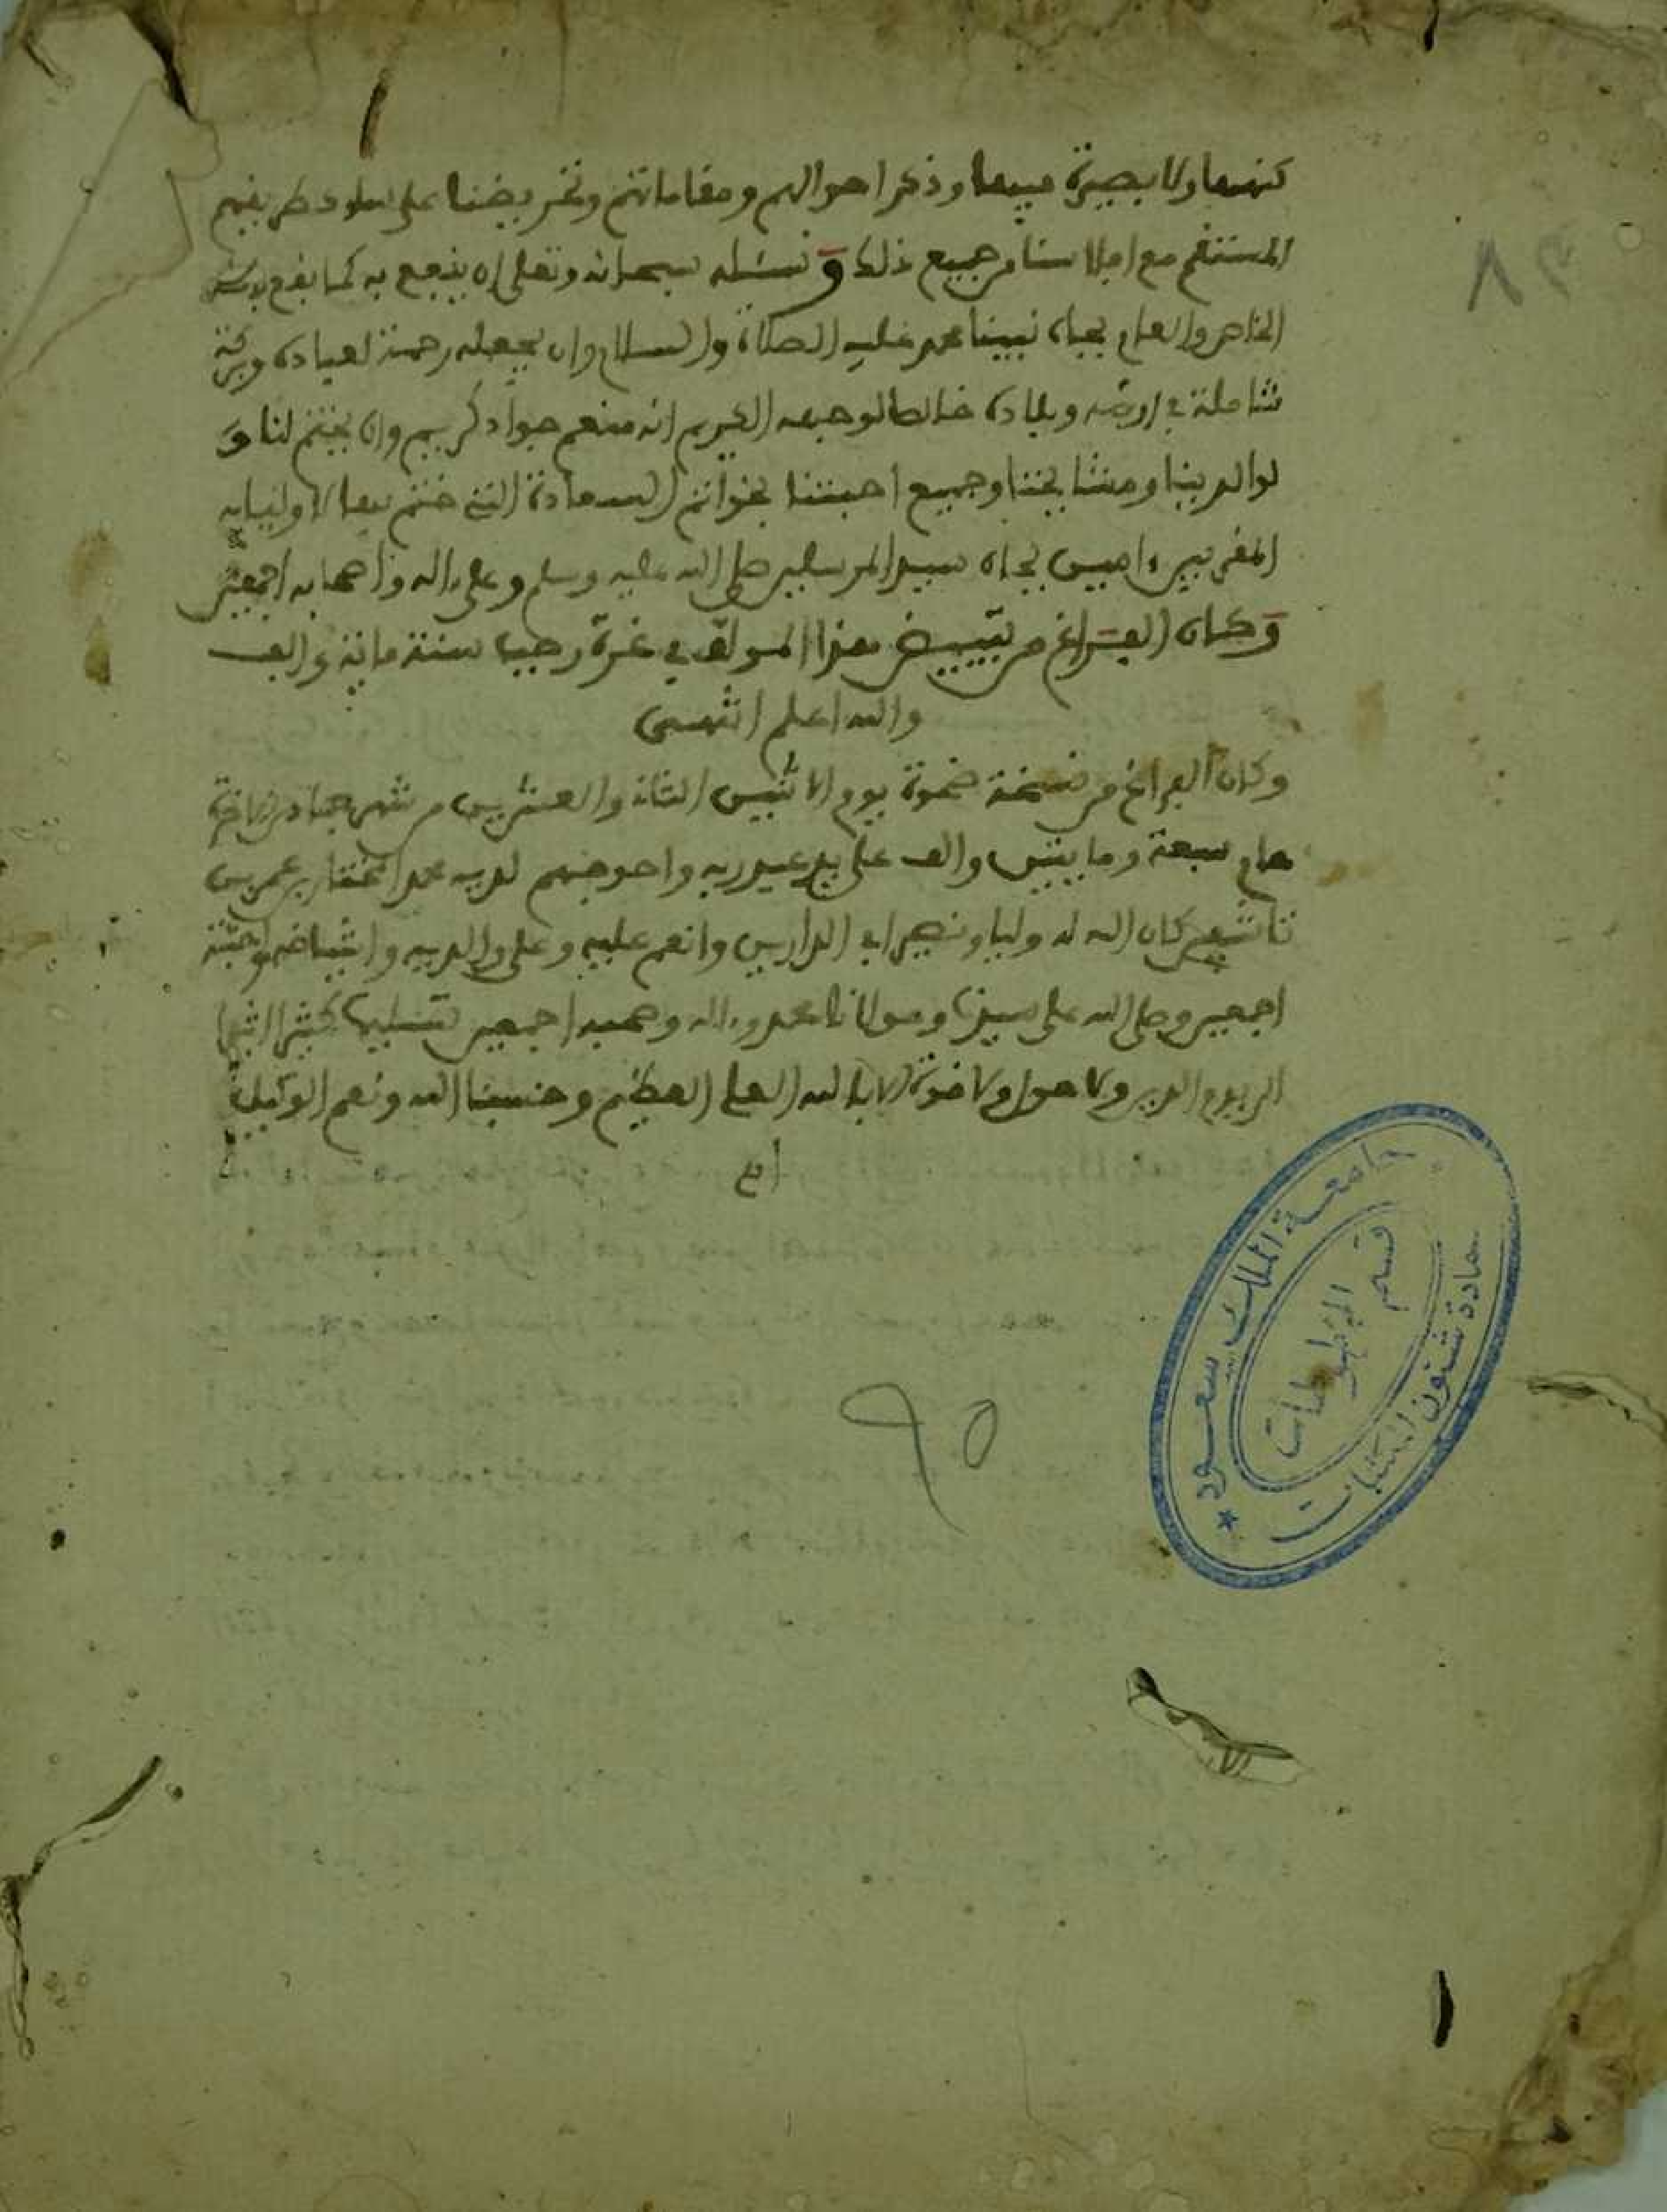 كنهها ولا بصيرة فيها وذكر احوالهم ومقاماتهم وتحريضنا على سلوك طريقهم
المستقيم مع افلاسنا من جميع ذلك ونسئله سبحانه وتعلى ان ينفع به كما نفع
الخاص والعام بجاه نبينا محمد عليه الصلاة والسلام وان يجعله رحمة لعباده وبركة
شاملة في ارضه وبلاده خالصا لوجهه الكريم انه منعم جواد كريم وان يختم لنا و
لوالدينا ومشايخنا وجميع احبتنا بخواتم السعادة التي ختم بها لاوليايه
المقربين ءامين بجاه سيد المرسلين صلى الله عليه وسلم وعلى ءاله واصحابه اجمعين
وكان الفراغ من تبييض هذا المولف في غرة رجب سنة ماية والف
والله اعلم انتهى
وكان الفراغ من نسخة ضحوة يوم الاثنين الثاني والعشرين من شهر جمادى الاخرة
عام سبعة ومايتين والف على يد عبيد ربه واحوجهم لديه محمد المختار بن عمر بن
كان الله له وليا ونصيرا في الدارين وانعم عليه وعلى والديه واشياخه واحبته
اجمعين وصلى الله على سيدنا ومولانا محمد وءاله وصحبه اجمعين تسليما كثيرا اثيرا
الى يوم الدين ولا حول ولا قوة الا بالله العلي العظيم وحسبنا الله ونعم الوكيل
٩٥
جامعة الملك سعود
قسم
المخطوطات
عمادة شئون المكتبات